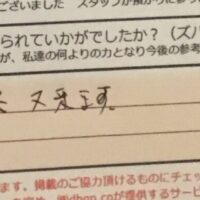 ございました スタッフが預かりに参っ
られていかがでしたか？（ズバ
が、私達の何よりの力となり今後の参考
又来ます。
ます。掲載のご協力頂けるものにチェッ
が提供するサービ